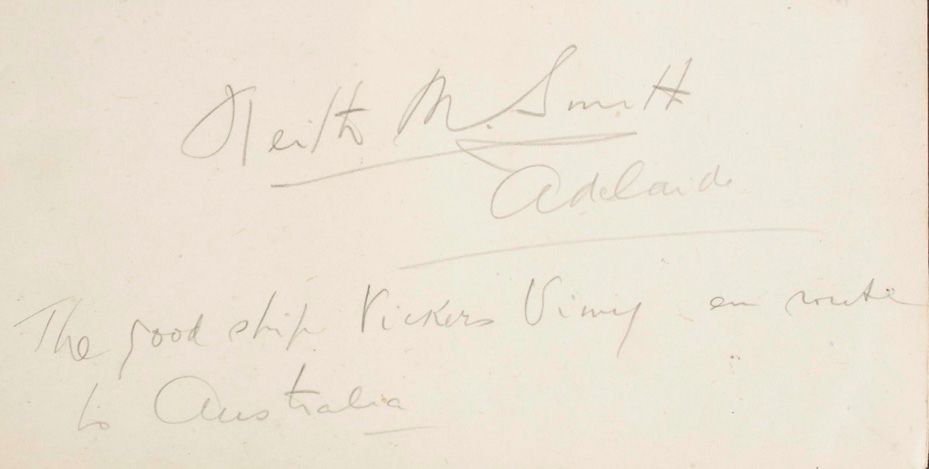 Keith M. Smith
Adelaide
The good ship Vickers Vimy en route
to Australia